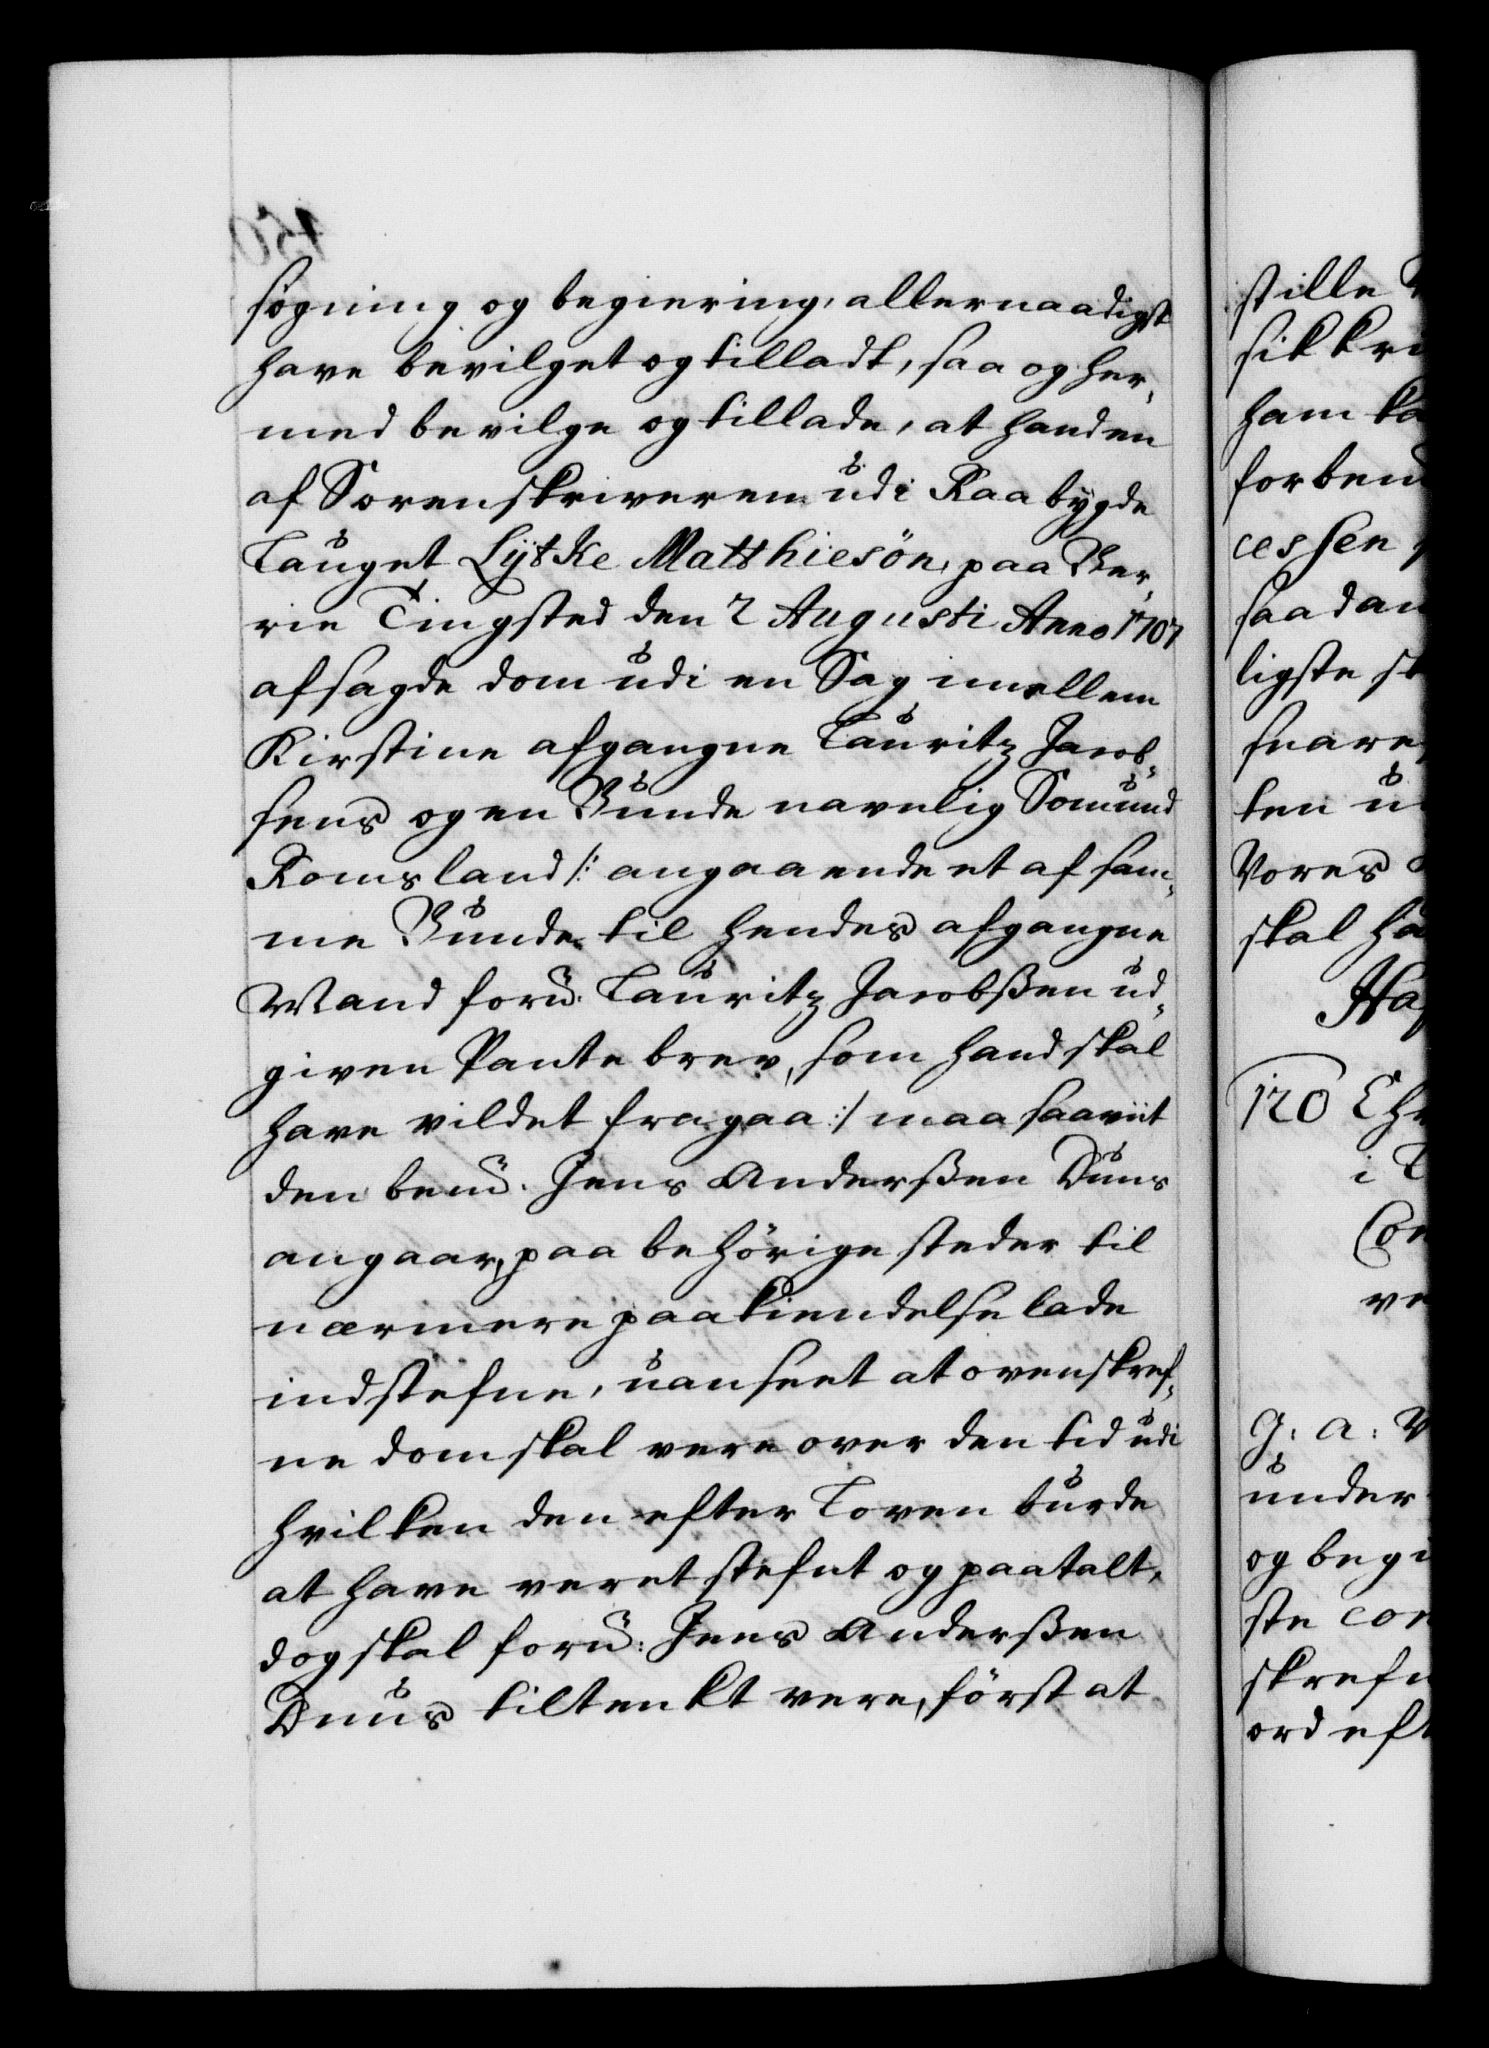 søgning og begiering, allernaadigst
have bevilget og tilladt, saa og her,
med bevilge og tillade, at handen
af Sorenskriveren udi Raabygde
Lauget Lÿtke Matthiesön, paa Ber,
rie Tingsted den 2 Augusti Anno 1707
afsagde dom udi en Sag imellem
Kirstine afgangne Lauritz Jacob-
sens og en Bunde navnlig Somund
Romsland /: angaaende et af sam-
me Bunde til hendes afgangne
Mand forn: Lauritz Jacobßen ud-
given Pantebrev, som hand skal
have vildet fragaa :/ maa saaviit
den bem: Jens Anderßen Duus
angaar, paa behörige steder til
nærmere paakiendelse lade
indstefne, uanseet at ovenskref-
ne dom skal vere over den tid udi
hvilken den efter Loven burde
at have veret stefnt og paatalt,
dog skal forn: Jens Anderßen
Duus tiltenkt vere, först at
stille
ham
ligste
ten
Vores
skal
120
i
G: A: V
under
og begi
ste con
skrefn
ord eft